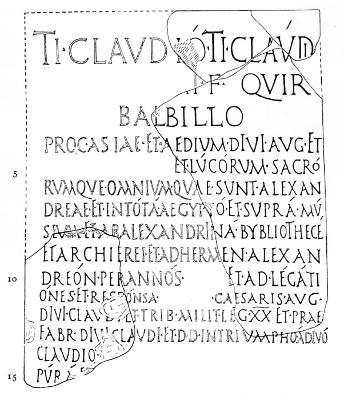 TI·CLAVDIÓ·TI·CLAVDI
F·QVIR
BALBILLO
PROC·ASIAE·ET·AEDIUM·DIVI·AUG·ET
5 ET·LÚCORUM·SACRÓ
RUMQVE·OMNIUMQVAE·SUNT·ALEXAN
DREAE·ET·IN·TOTÁ·AEGYPTO·ET·SUPRA·MÚ
SEVM·ET·AB·ALEXANDRINA·BYBLIOTHECE
ET·ARCHIERE·ET·AD·HERMEN·ALEXAN
10 DREÓN·PER·ANNÓS ET·AD·LÉGÁTI
ONES·ET·RESPONSA CAESARIS·AUG·
DIVI·CLAUDI·ET·TRIB·MILIT·LEG·XX·ET·PRAE
FABR·DIVI·CLAUDI·ET·D·D·IN·TRIVMPHO·Á·DIVÓ
CLAUDIO
15 PÚR